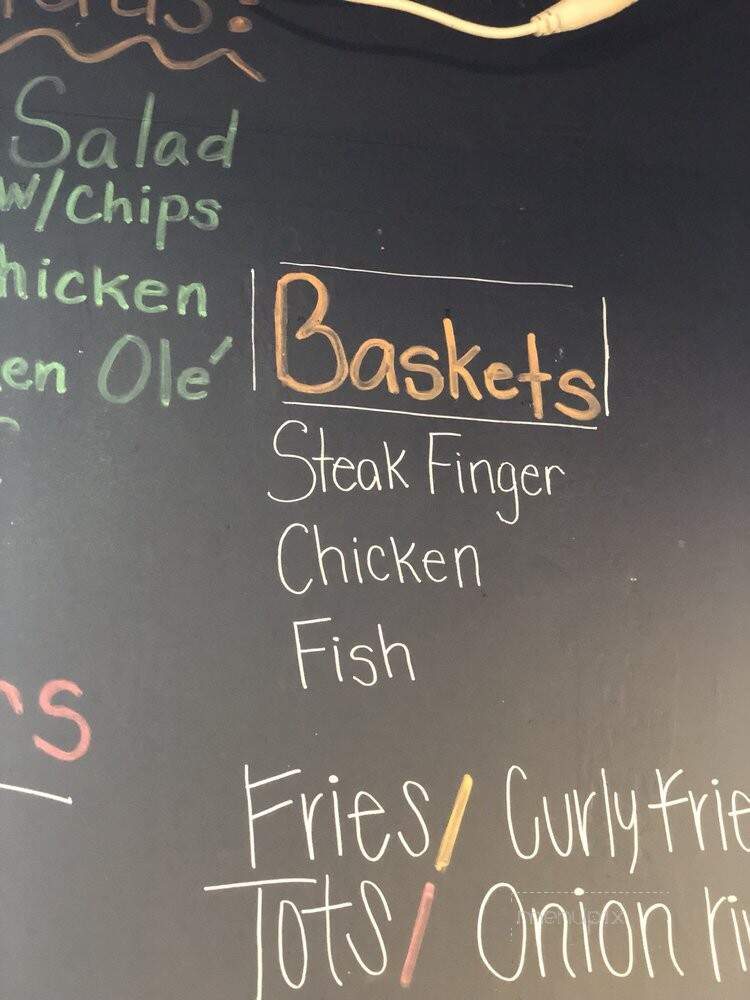 Salad
w/chips
hicken
en Olé
Baskets
Steak Finger
Chicken
Fish
rs
Fries/ Curly Frie
Tots/ Onion ri
menupix